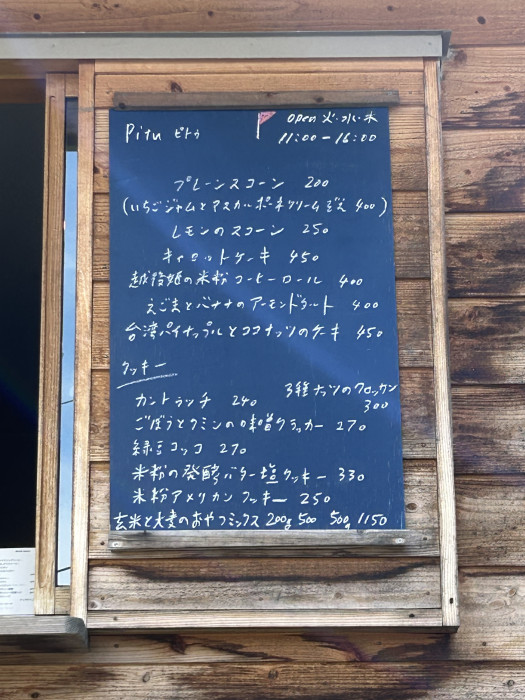 Pitu ピトゥ
open 火・水・木
11:00 − 16:00
プレーンスコーン 200
(いちごジャムとマスカルポーネクリーム添え 400)
レモンのスコーン 250
キャロットケーキ 450
越後姫の米粉コーヒーロール 400
えごまとバナナのアーモンドタルト 400
台湾パイナップルとココナッツのケーキ 450
クッキー
カントゥッチ 240
3種ナッツのクロッカン
300
ごぼうとクミンの味噌クラッカー 270
緑豆コッコ 270
米粉の発酵バター塩クッキー 330
米粉アメリカンクッキー 250
玄米と大麦のおやつミックス 200g 500 500g 1150